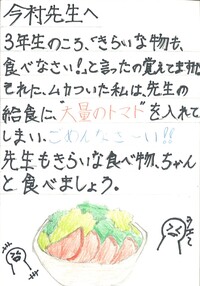 今村先生へ
3年生のころ、「きらいな物も、
食べなさい!」と言ったの覚えてますか
それに、ムカついた私は、先生の
給食に、"大量のトマト"を入れて
しまい、ごめんなさ〜い!!
先生もきらいな食べ物、ちゃん
と食べましょう。